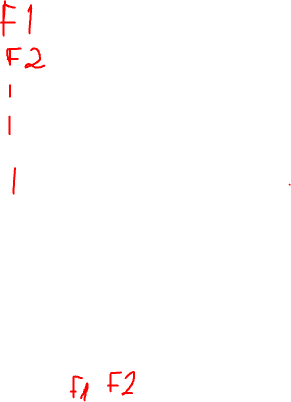 F1
F2
|
|
|
F1 F2